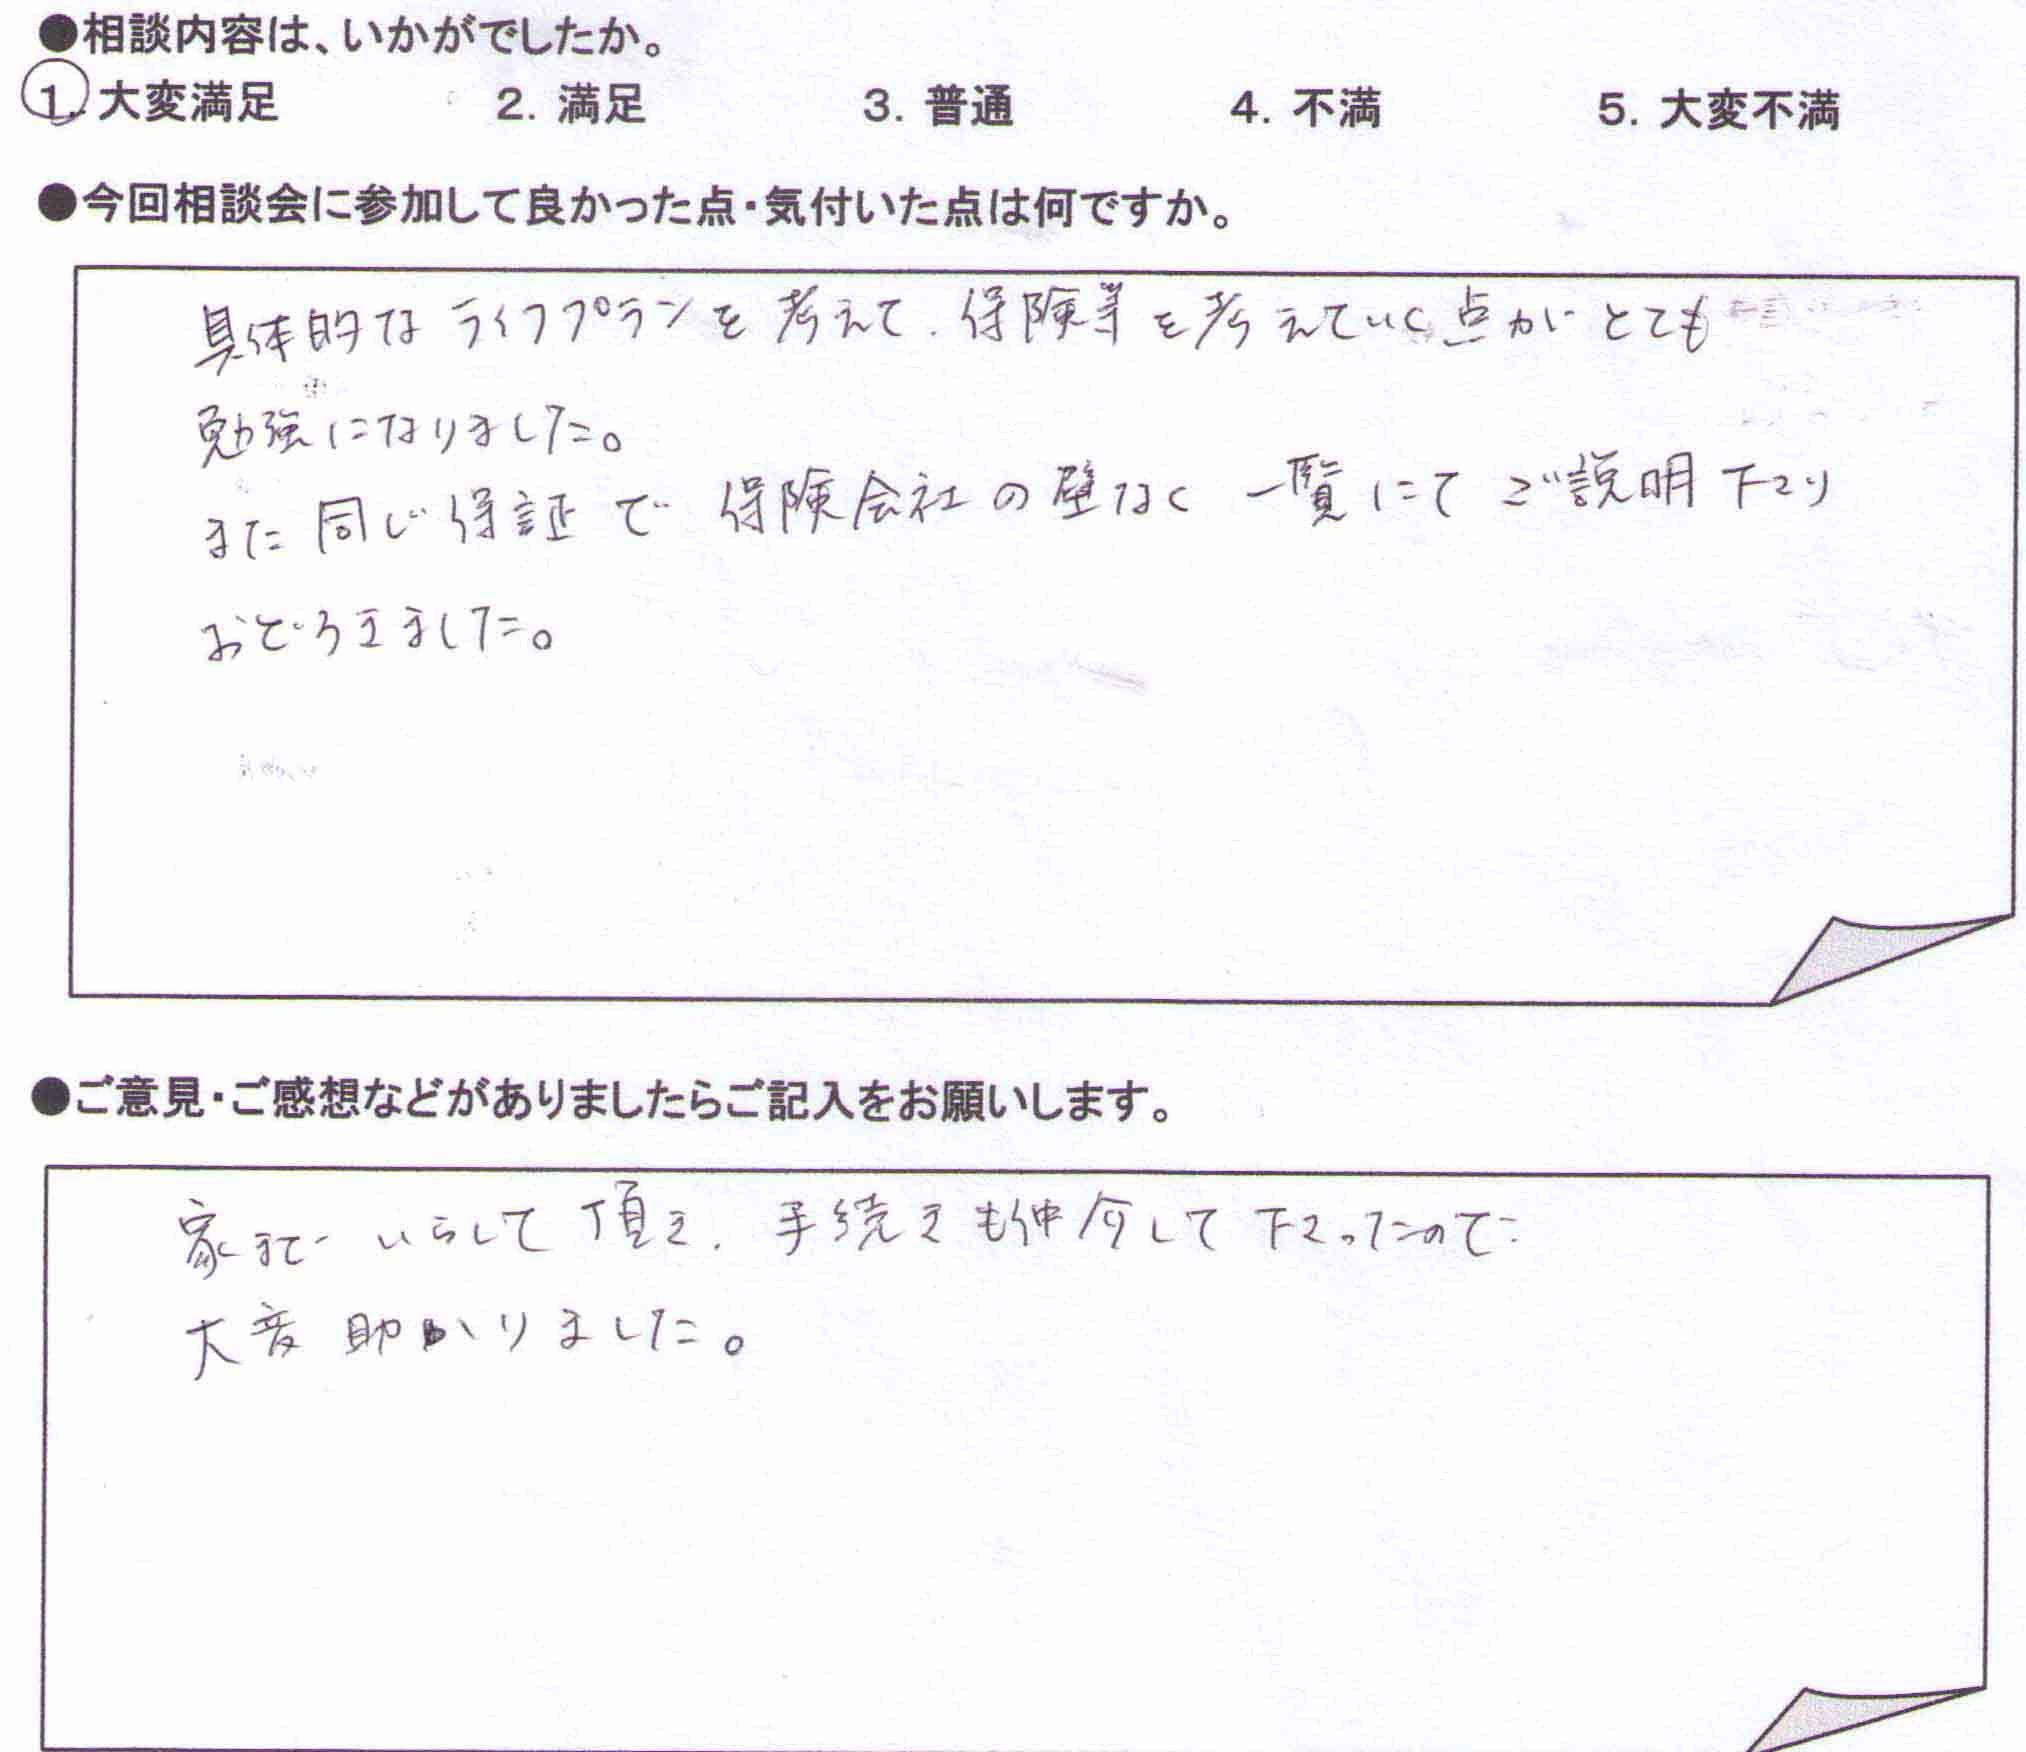 ●相談内容は、いかがでしたか。
1. 大変満足 2. 満足 3. 普通 4. 不満 5. 大変不満
●今回相談会に参加して良かった点・気付いた点は何ですか。
具体的なライフプランを考えて、保険等を考えていく点がとても
勉強になりました。
また同じ保証で保険会社の壁なく一覧にてご説明下さり
おどろきました。
●ご意見・ご感想などがありましたらご記入をお願いします。
家までいらして頂き、手続きも仲介して下さったので
大変助かりました。